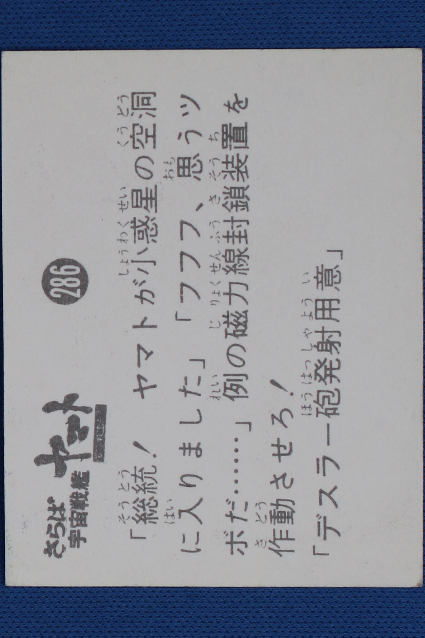 さらば
宇宙戦艦
ヤマト
286
「総統！ヤマトが小惑星の空洞
に入りました」「フフフ、思うツ
ボだ……」例の磁力線封鎖装置を
作動させろ！
「デスラー砲発射用意」